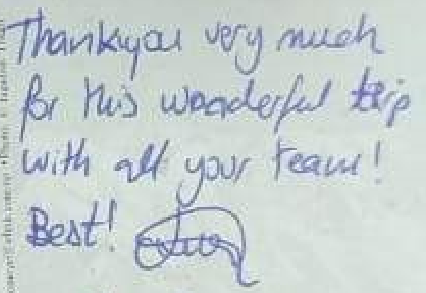 Thankyou very much
for this wonderful trip
with all your team!
Best!